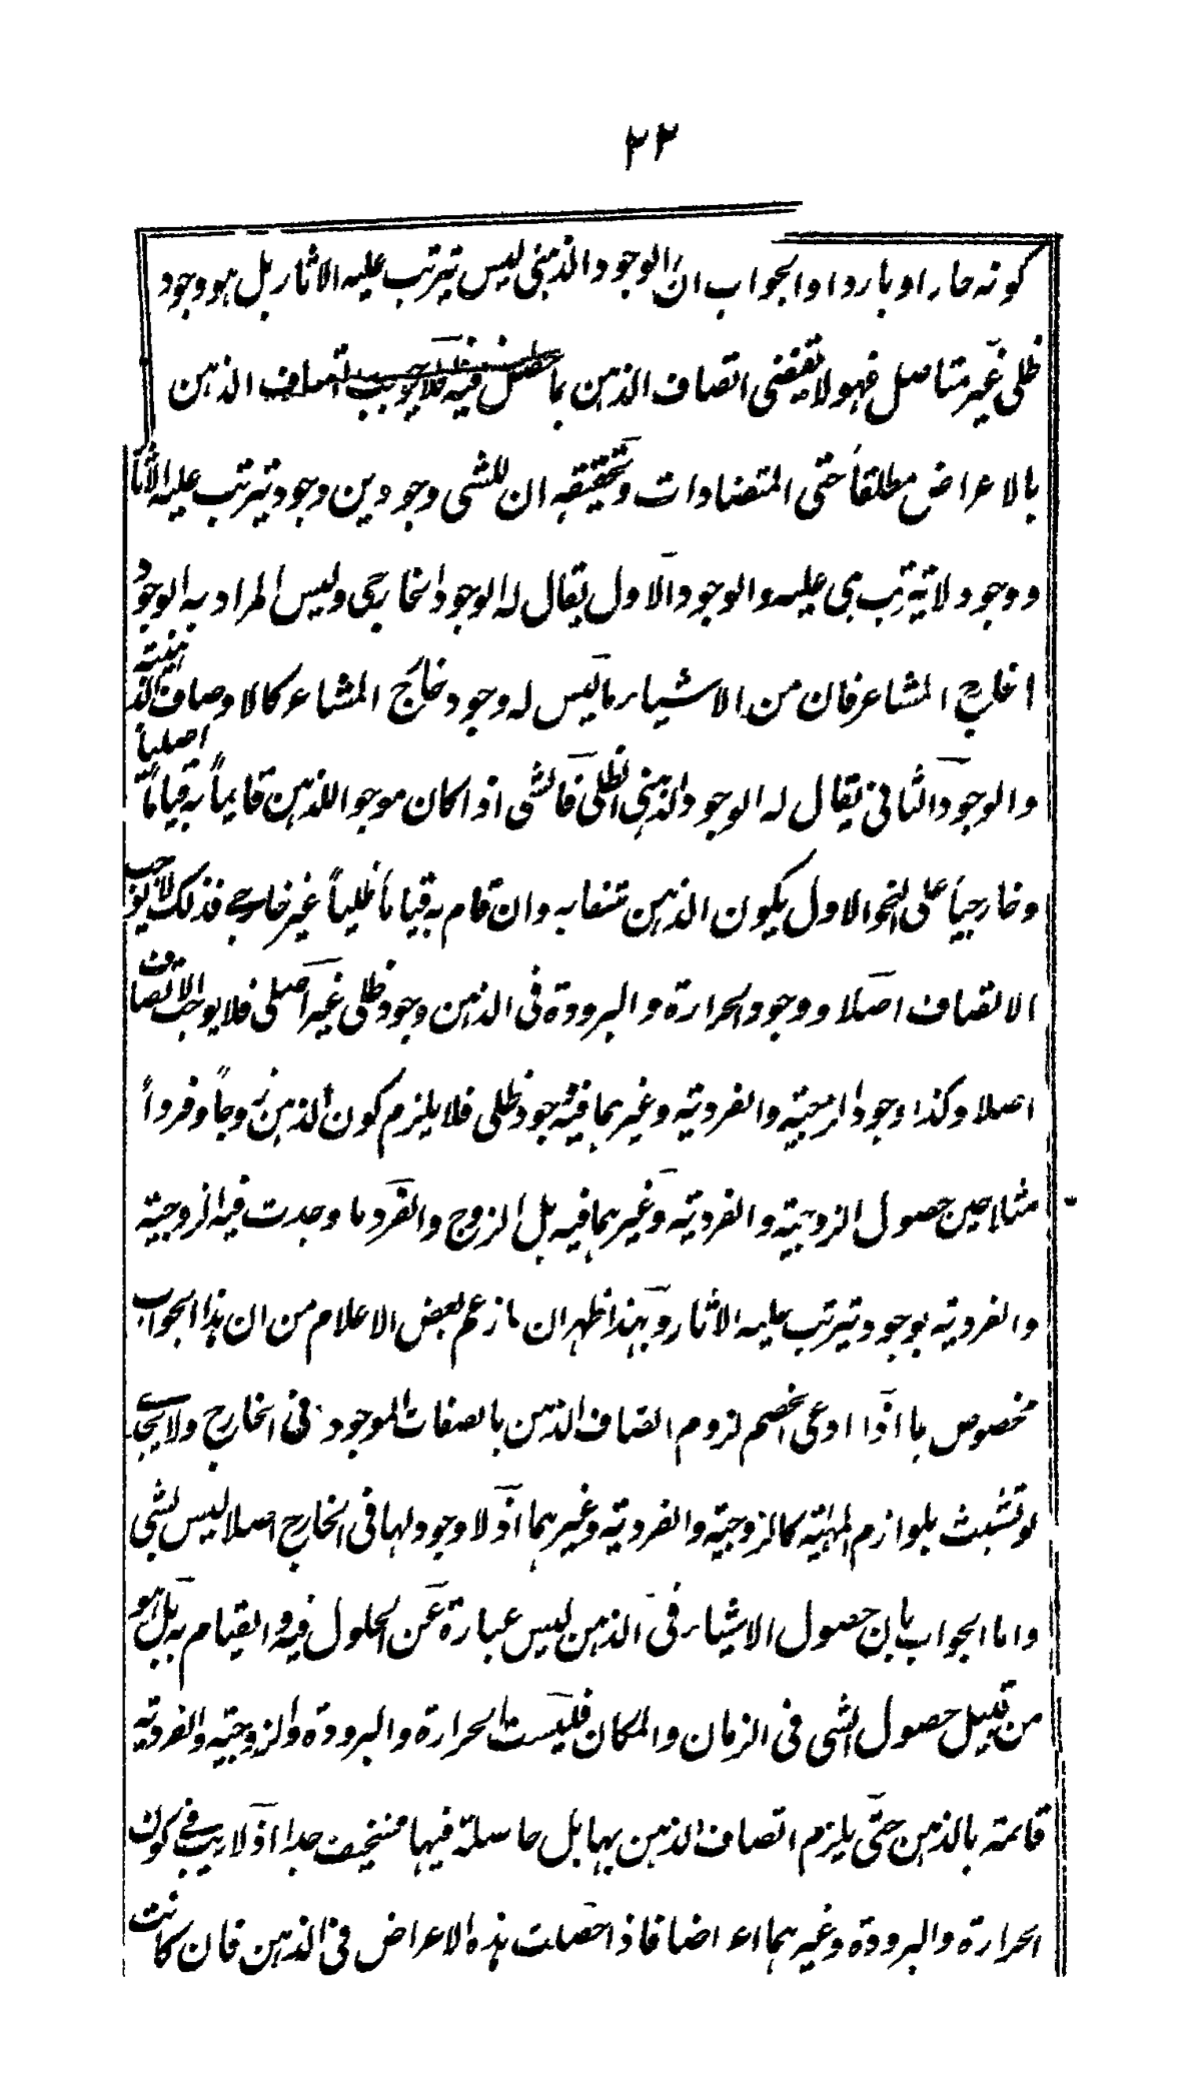 ٢٢
كونه حارا او باردا والجواب ان الوجود الذهني ليس يترتب عليه الاثار بل هو وجود
ظلي غير متاصل فهو لا يقتضي اتصاف الذهن بما حصل فيه فلا يوجب اتصاف الذهن
بالاعراض مطلقاً حتى المتضادات وتحقيقه ان للشي وجودين وجود يترتب عليه الاثار
ووجود لا يترتب هي عليه والوجود الاول يقال له الوجود الخارجي وليس المراد به الوجود
الخارج المشاعر فان من الاشياء ما ليس له وجود خارج المشاعر كالاوصاف الذهنية
والوجود الثاني يقال له الوجود الذهني الظلي فالشي اذا كان موجوا للذهن قايماً به قياماً اصلياً
وخارجياً على النحو الاول يكون الذهن متصفا به وان قام به قياماً ظلياً غير خارجي فذلك لا يوجب
الاتصاف اصلا ووجود الحرارة والبرودة في الذهن وجود ظلي غير اصلي فلا يوجب الاتصاف
اصلا وكذا وجود الزوجية والفردية وغيرهما فيه وجود ظلي فلا يلزم كون الذهن زوجاً وفرداً
مثلا حين حصول الزوجية والفردية وغيرهما فيه بل الزوج والفرد ما وجدت فيه الزوجية
والفردية بوجود يترتب عليه الاثار وبهذا ظهر ان ما زعم بعض الاعلام من ان هذا الجواب
مخصوص بما اذا ادعى الخصم لزوم اتصاف الذهن بالصفات الموجود في الخارج ولا يجري
لو تشبث بلوازم المهية كالزوجية والفردية وغيرهما اذ لا وجود لها في الخارج اصلا ليس بشي
واما الجواب بان حصول الاشياء في الذهن ليس عبارة عن الحلول فيه والقيام به بل هو
من قبيل حصول الشي في الزمان والمكان فليست الحرارة والبرودة والزوجية والفردية
قائمة بالذهن حتى يلزم اتصاف الذهن بها بل حاصلة فيها فسخيف جدا اذ لا ريب في كون
الحرارة والبرودة وغيرهما اعراضا فاذا حصلت هذه الاعراض في الذهن فان كانت